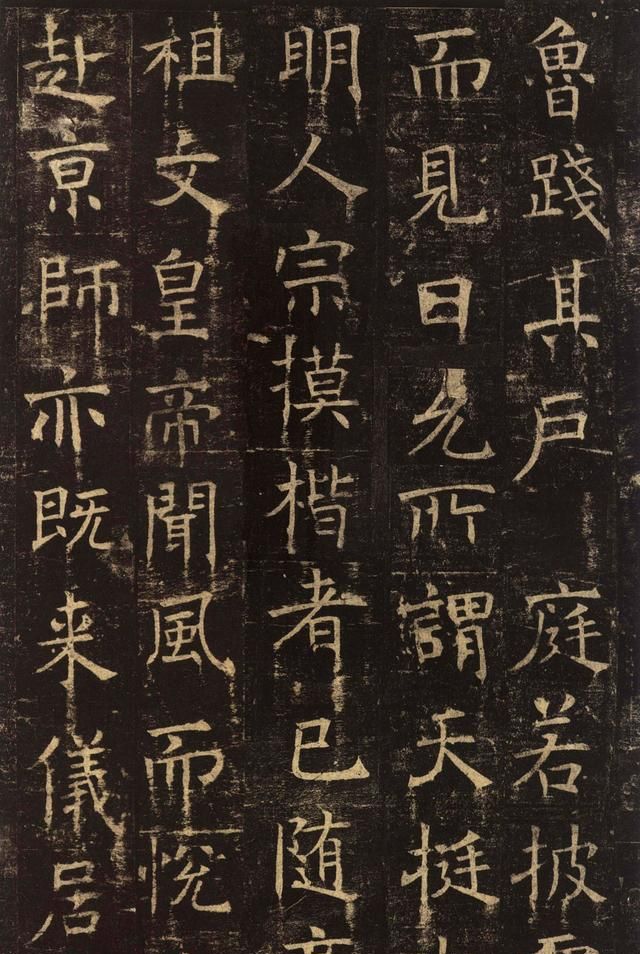 魯踐其户庭若披
而見日允所謂天挺
明人宗摸楷者已随
祖文皇帝聞風而悦
赴京師亦既来儀居